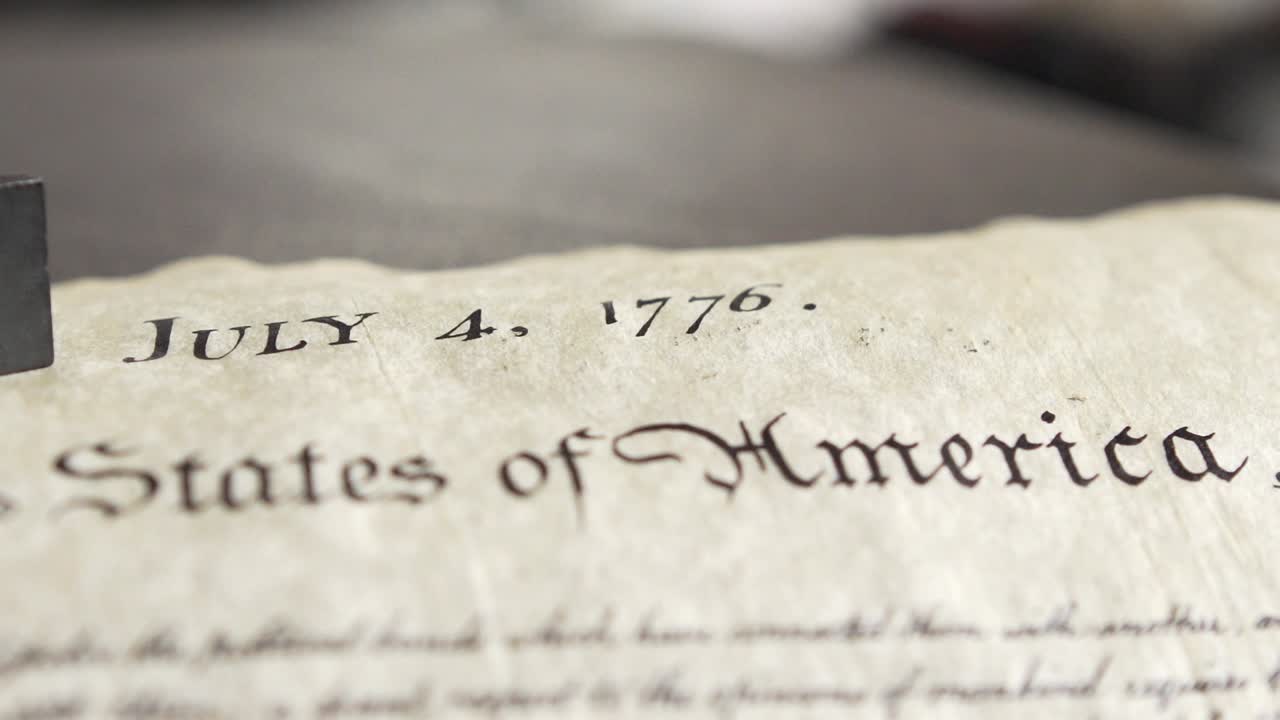 JULY 4, 1776.
States of America,
the political bands which have connected them with another,
a decent respect to the opinions of mankind requires